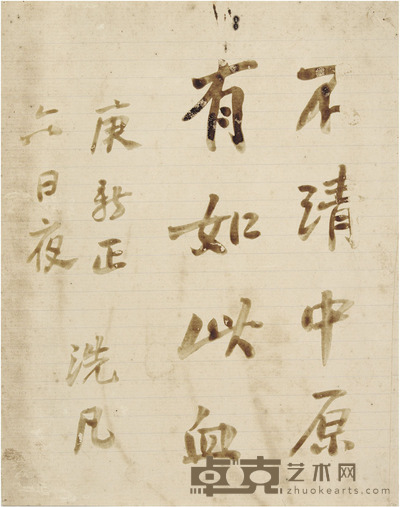 不清中原
有如此血
庚新正
六日夜
洗凡
卓克艺术网
zhuokearts.com